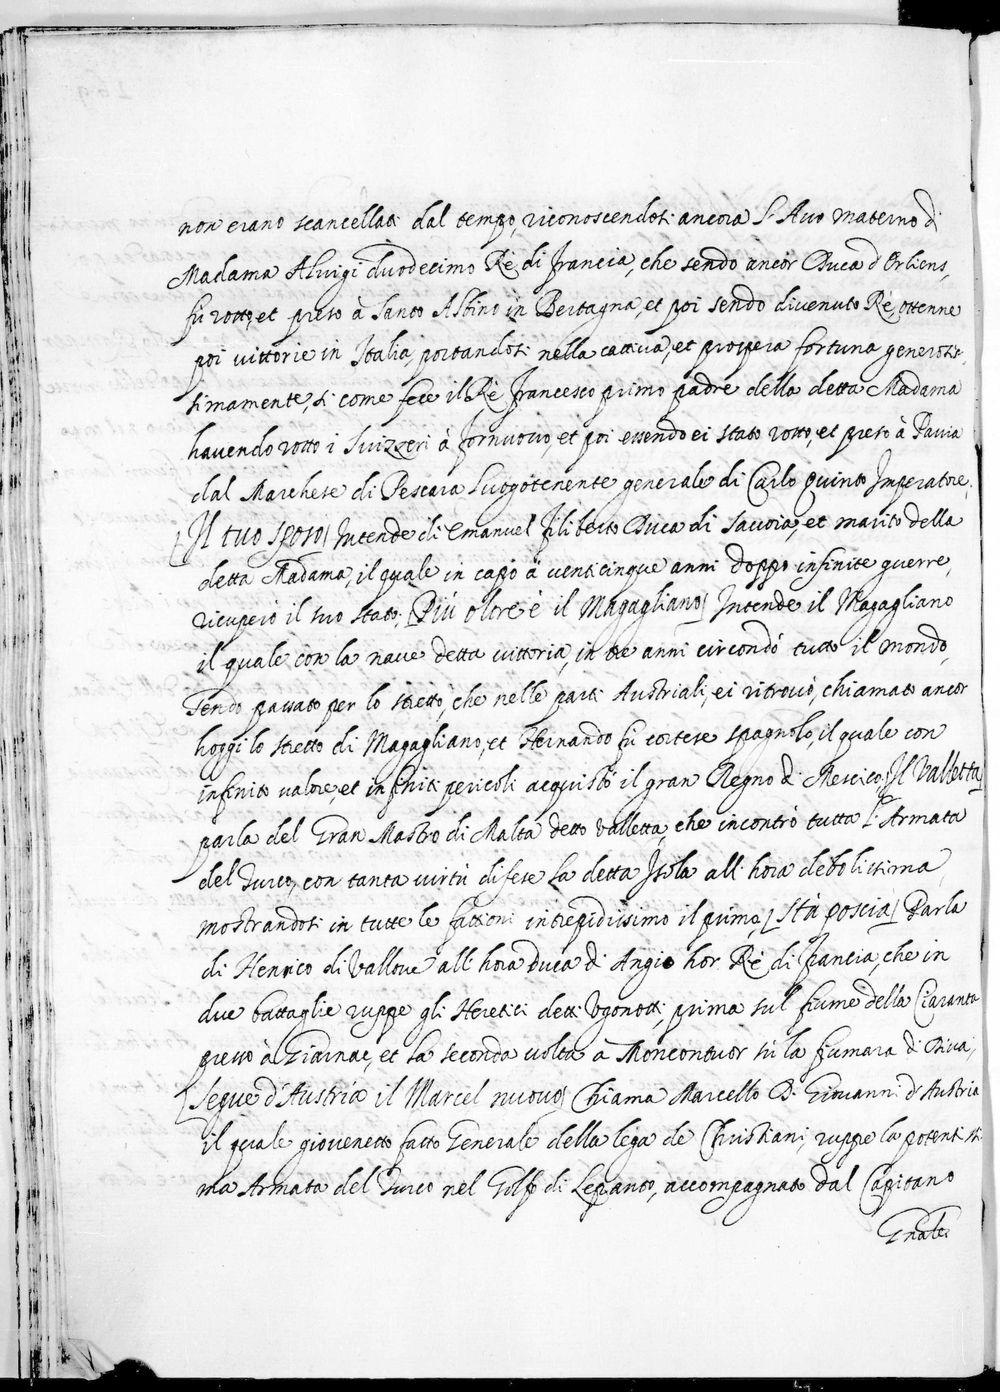 non erano scancellati dal tempo, riconoscendosi ancora l'Auo materno di
Madama Aluigi duodecimo Rè di Francia, che sendo ancor Duca d'Orliens,
fù rotto, et preso à Santo Albino in Bertagna, et poi sendo diuenuto Rè, ottenne
poi vittorie in Italia, portandosi nella cattiua, et prospera fortuna generosis,
simamente, si come fece il Rè Francesco primo padre della detta Madama
hauendo rotto i Suizzeri à Fornuouo, et poi essendo ei stato rotto, et preso à Pauia
dal Marchese di Pescara Luogotenente generale di Carlo Quinto Imperatore.
[Il tuo sposo] Intende di Emanuel Filiberto Duca di Sauoia, et marito della
detta Madama, il quale in capo à venticinque anni doppo infinite guerre,
ricuperò il suo stato; [Più oltre è il Magagliano] Intende il Magagliano
il quale con la naue detta vittoria, in tre anni circondò tutto il mondo,
sendo passato per lo stretto, che nelle parti Austriali, ei ritrouò, chiamato ancor
hoggi lo stretto di Magagliano, et Hernando fù cortese spagnolo, il quale con
infinito valore, et infiniti pericoli acquistò il gran Regno di Mescico, [Il Valletta]
parla del Gran Mastro di Malta detto Valletta, che incontrò tutta l'Armata
del Turco, con tanta virtù difese la detta Isola all'hora debolissima,
mostrandosi in tutte le fattioni intrepidissimo il primo, [Stà poscia] Parla
di Henrico di Valloue all'hora Duca di Angio hor Rè di Francia, che in
due battaglie ruppe gli Heretici detti Vgonotti, prima sul fiume della Ciaranta
presso à Giarnac, et la seconda volta à Moncontuor sù la fiumara di Diua,
[Segue d'Austria il Marcel nuouo] Chiama Marcello D. Giouanni d'Austria
il quale giouenetto fatto Generale della lega de Christiani, ruppe la potentissi
ma Armata del Turco nel Golfo di Lepanto, accompagnato dal Capitano
Gnale